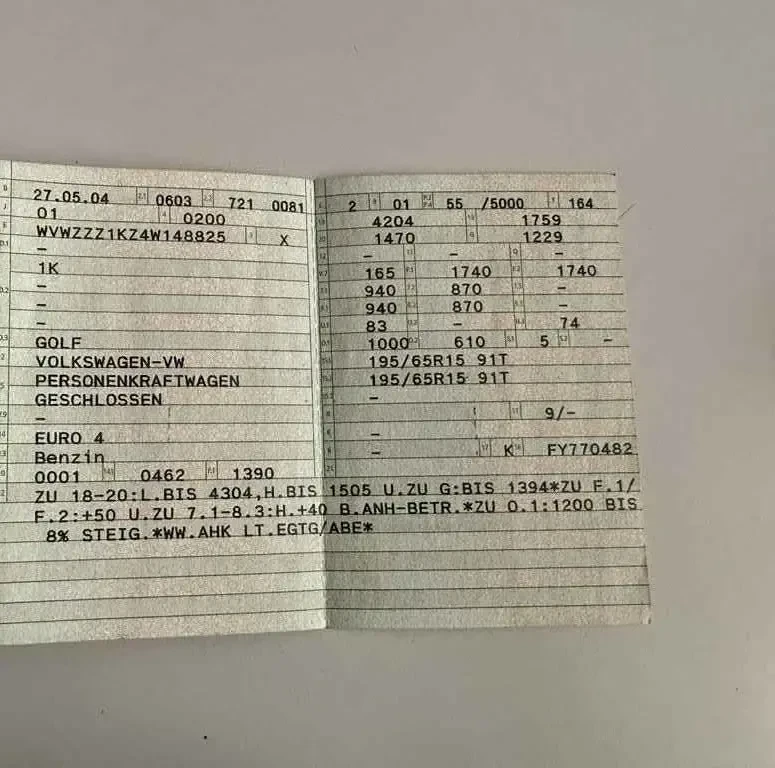 27.05.04 0603 721 0081
01 0200
WVWZZZ1KZ4W148825 X
-
1K
-
-
-
GOLF
VOLKSWAGEN-VW
PERSONENKRAFTWAGEN
GESCHLOSSEN
-
EURO 4
Benzin
0001 0462 1390
2 01 55 /5000 164
4204 1759
1470 1229
- - -
165 1740 1740
940 870 -
940 870 -
83 - 74
1000 610 5 -
195/65R15 91T
195/65R15 91T
-
9/-
-
- K FY770482
ZU 18-20:L.BIS 4304,H.BIS 1505 U.ZU G:BIS 1394*ZU F.1/
F.2:+50 U.ZU 7.1-8.3:H.+40 B.ANH-BETR.*ZU O.1:1200 BIS
8% STEIG.*WW.AHK LT.EGTG/ABE*